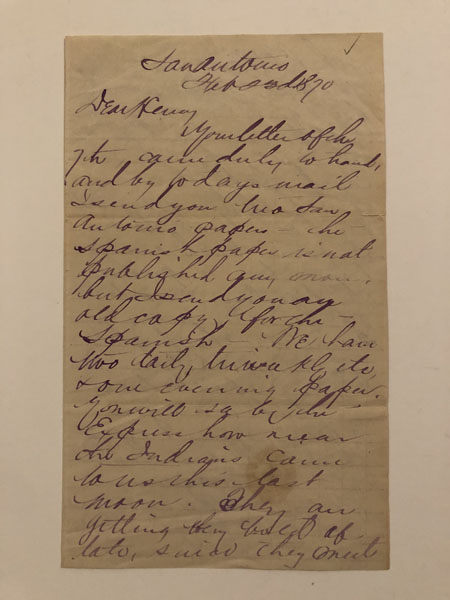 San Antonio
Feb 22d 1870
Dear Henry
Your letter of the
7th came duly to hand,
and by to days mail
I send you two San
Antonio papers – the
Spanish paper is not
published any more.
but I send you an
old copy for the
Spanish – We have
two daily, triweekly etc,
& one evening paper.
You will see by the
Express how near
the Indians came
to us this last
moon. They are
getting very bold of
late, since they